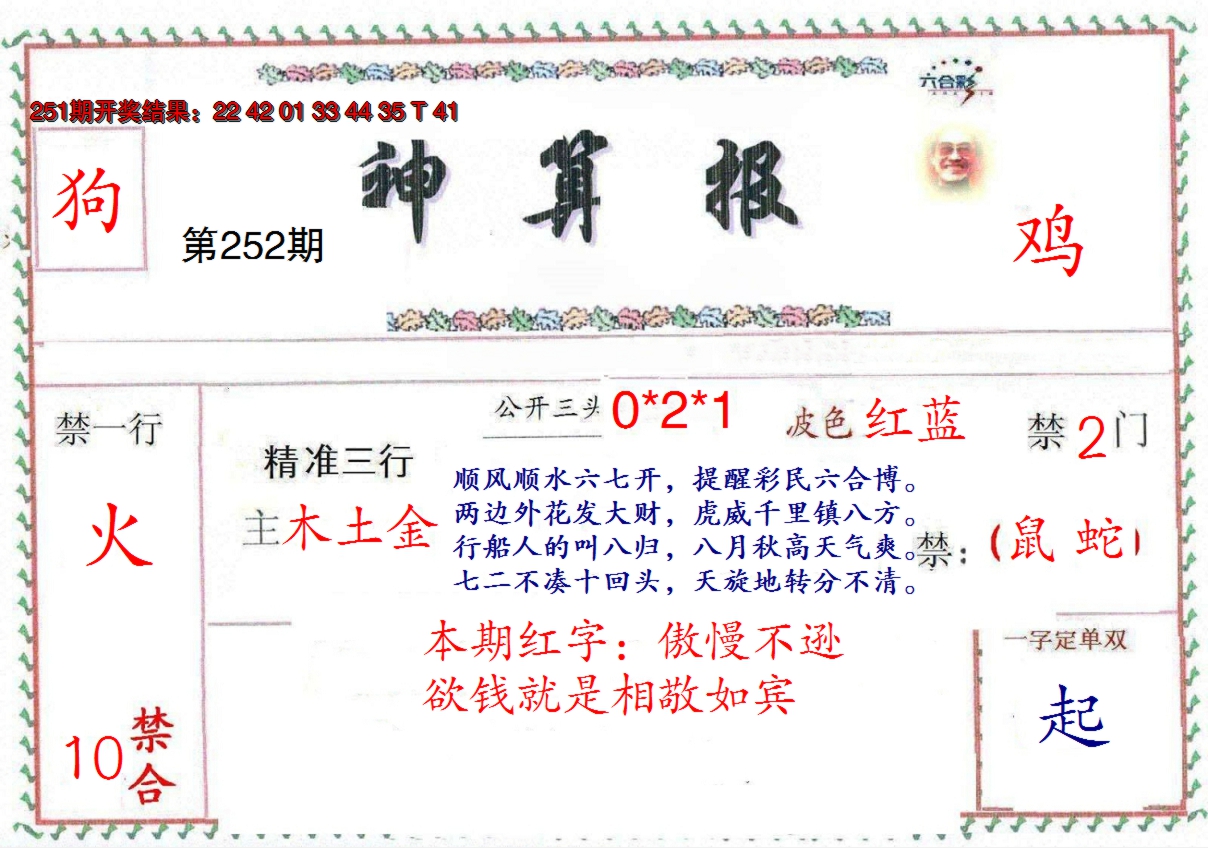 六合彩
251期开奖结果：22 42 01 33 44 35 T 41
神算报
狗
第252期
鸡
禁一行
火
10禁合
精准三行
主木土金
公开三头 0*2*1
波色 红蓝
禁2门
禁：(鼠 蛇)
顺风顺水六七开，提醒彩民六合博。
两边外花发大财，虎威千里镇八方。
行船人的叫八归，八月秋高天气爽。
七二不凑十回头，天旋地转分不清。
本期红字：傲慢不逊
欲钱就是相敬如宾
一字定单双
起